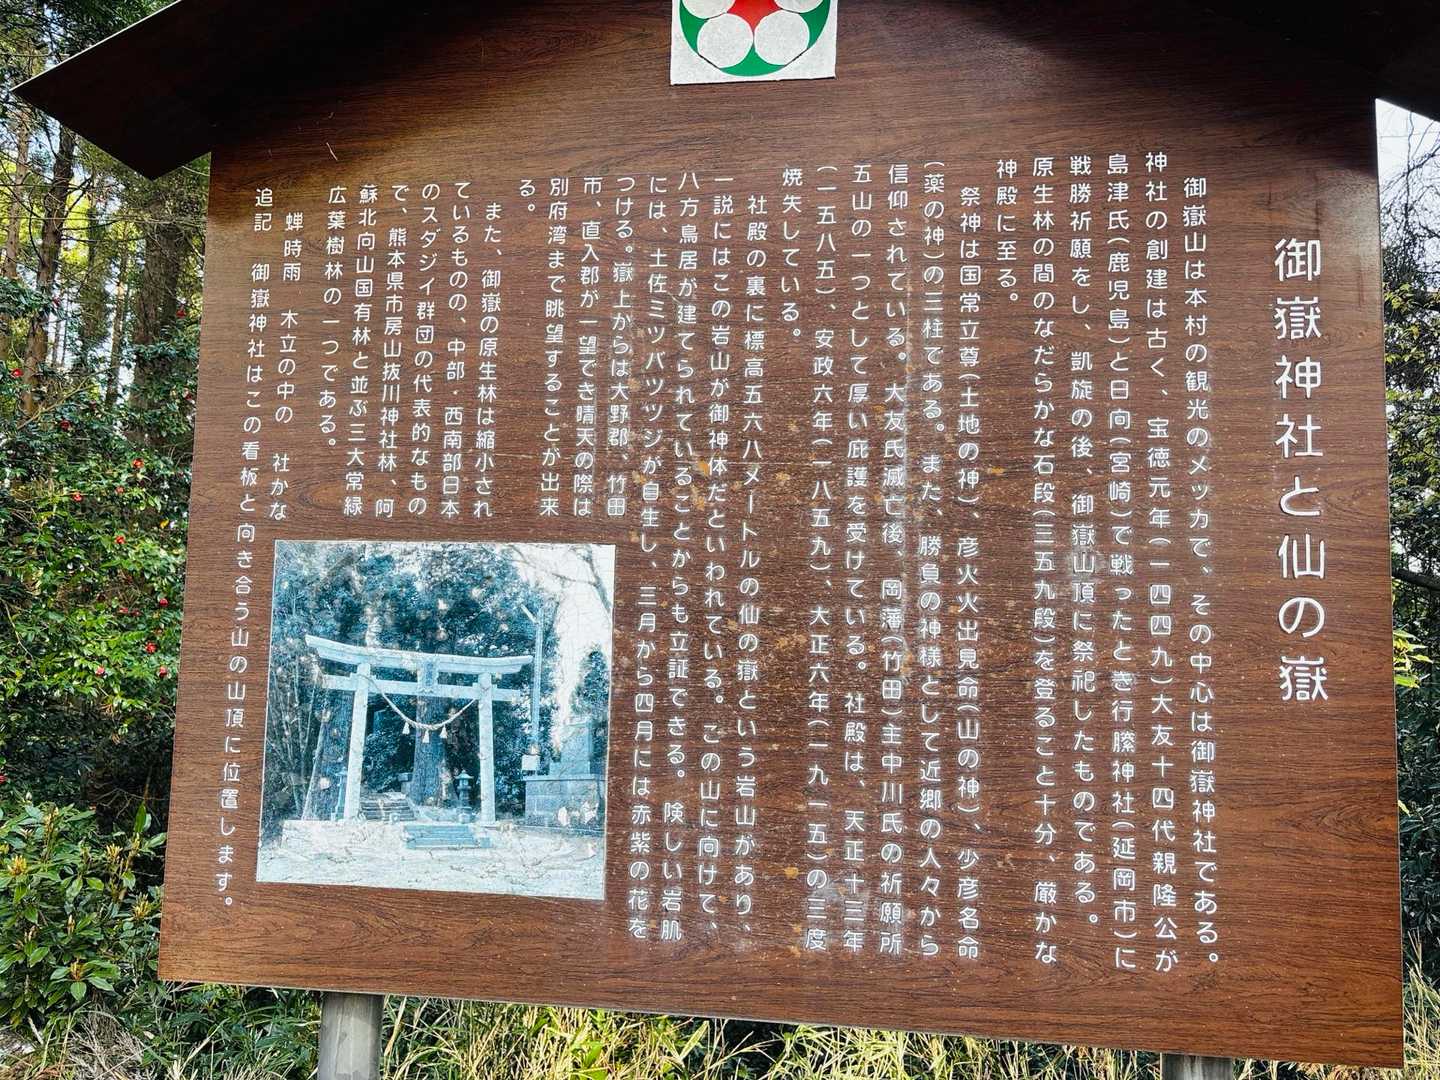 御嶽神社と仙の嶽
御嶽山は本村の観光のメッカで、その中心は御嶽神社である。
神社の創建は古く、宝徳元年(一四四九)大友十四代親隆公が
島津氏(鹿児島)と日向(宮崎)で戦ったとき行縢神社(延岡市)に
戦勝祈願をし、凱旋の後、御嶽山頂に祭祀したものである。
原生林の間のなだらかな石段(三五九段)を登ること十分、厳かな
神殿に至る。
祭神は国常立尊(土地の神)、彦火火出見命(山の神)、少彦名命
(薬の神)の三柱である。また、勝負の神様として近郷の人々から
信仰されている。大友氏滅亡後、岡藩(竹田)主中川氏の祈願所
五山の一つとして厚い庇護を受けている。社殿は、天正十三年
(一五八五)、安政六年(一八五九)、大正六年(一九一五)の三度
焼失している。
社殿の裏に標高五六八メートルの仙の嶽という岩山があり、
一説にはこの岩山が御神体だといわれている。この山に向けて、
八方鳥居が建てられていることからも立証できる。険しい岩肌
には、土佐ミツバツツジが自生し、三月から四月には赤紫の花を
つける。嶽上からは大野郡、竹田
市、直入郡が一望でき晴天の際は
別府湾まで眺望することが出来
る。
また、御嶽の原生林は縮小され
ているものの、中部・西南部日本
のスダジイ群団の代表的なもの
で、熊本県市房山抜川神社林、阿
蘇北向山国有林と並ぶ三大常緑
広葉樹林の一つである。
蝉時雨 木立の中の 社かな
追記 御嶽神社はこの看板と向き合う山の山頂に位置します。